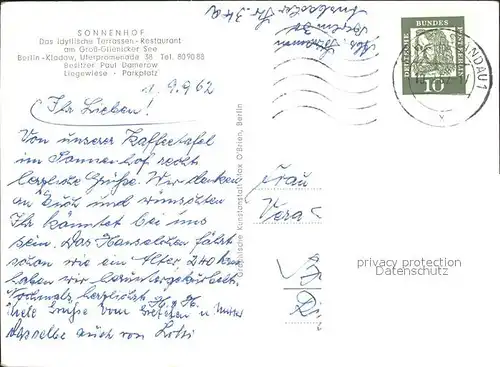 SONNENHOF
Das idyllische Terrassen-Restaurant
am Groß-Glienicker See
Berlin-Kladow, Uferpromenade 38 Tel. 80 90 88
Besitzer Paul Damerow
Liegewiese · Parkplatz
9.9.62
Ihr Lieben!
Von unserer Kaffeetafel
im Sonnenhof recht
herzliche Grüße. Wir denken
an Euch und wünschten
Ihr könntet bei uns
sein. Das Hänselchen fährt
schon wie ein Alter, 240 km
haben wir heruntergekurbelt.
Nochmals herzlichst
Viele Grüße vom
Dasselbe auch von Lotti
Graphische Kunstanstalt Max O'Brien, Berlin
DEUTSCHE BUNDESPOST BERLIN
10
Frau
Vera
privacy protection
Datenschutz